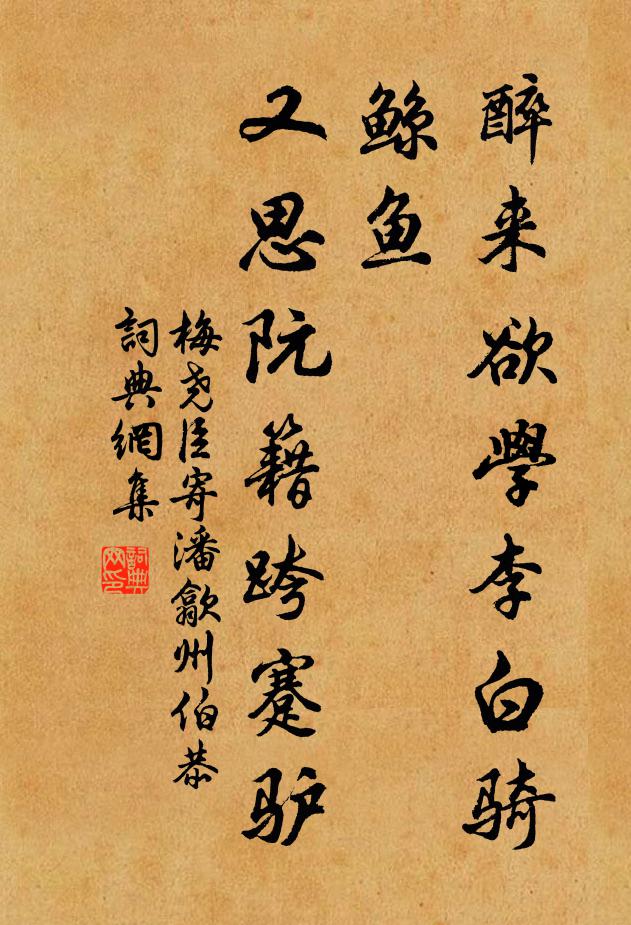 醉来欲學李白骑
鲸鱼
又思阮籍跨蹇驴
梅尧臣寄潘歙州伯恭
詞典網集
詞典
网印